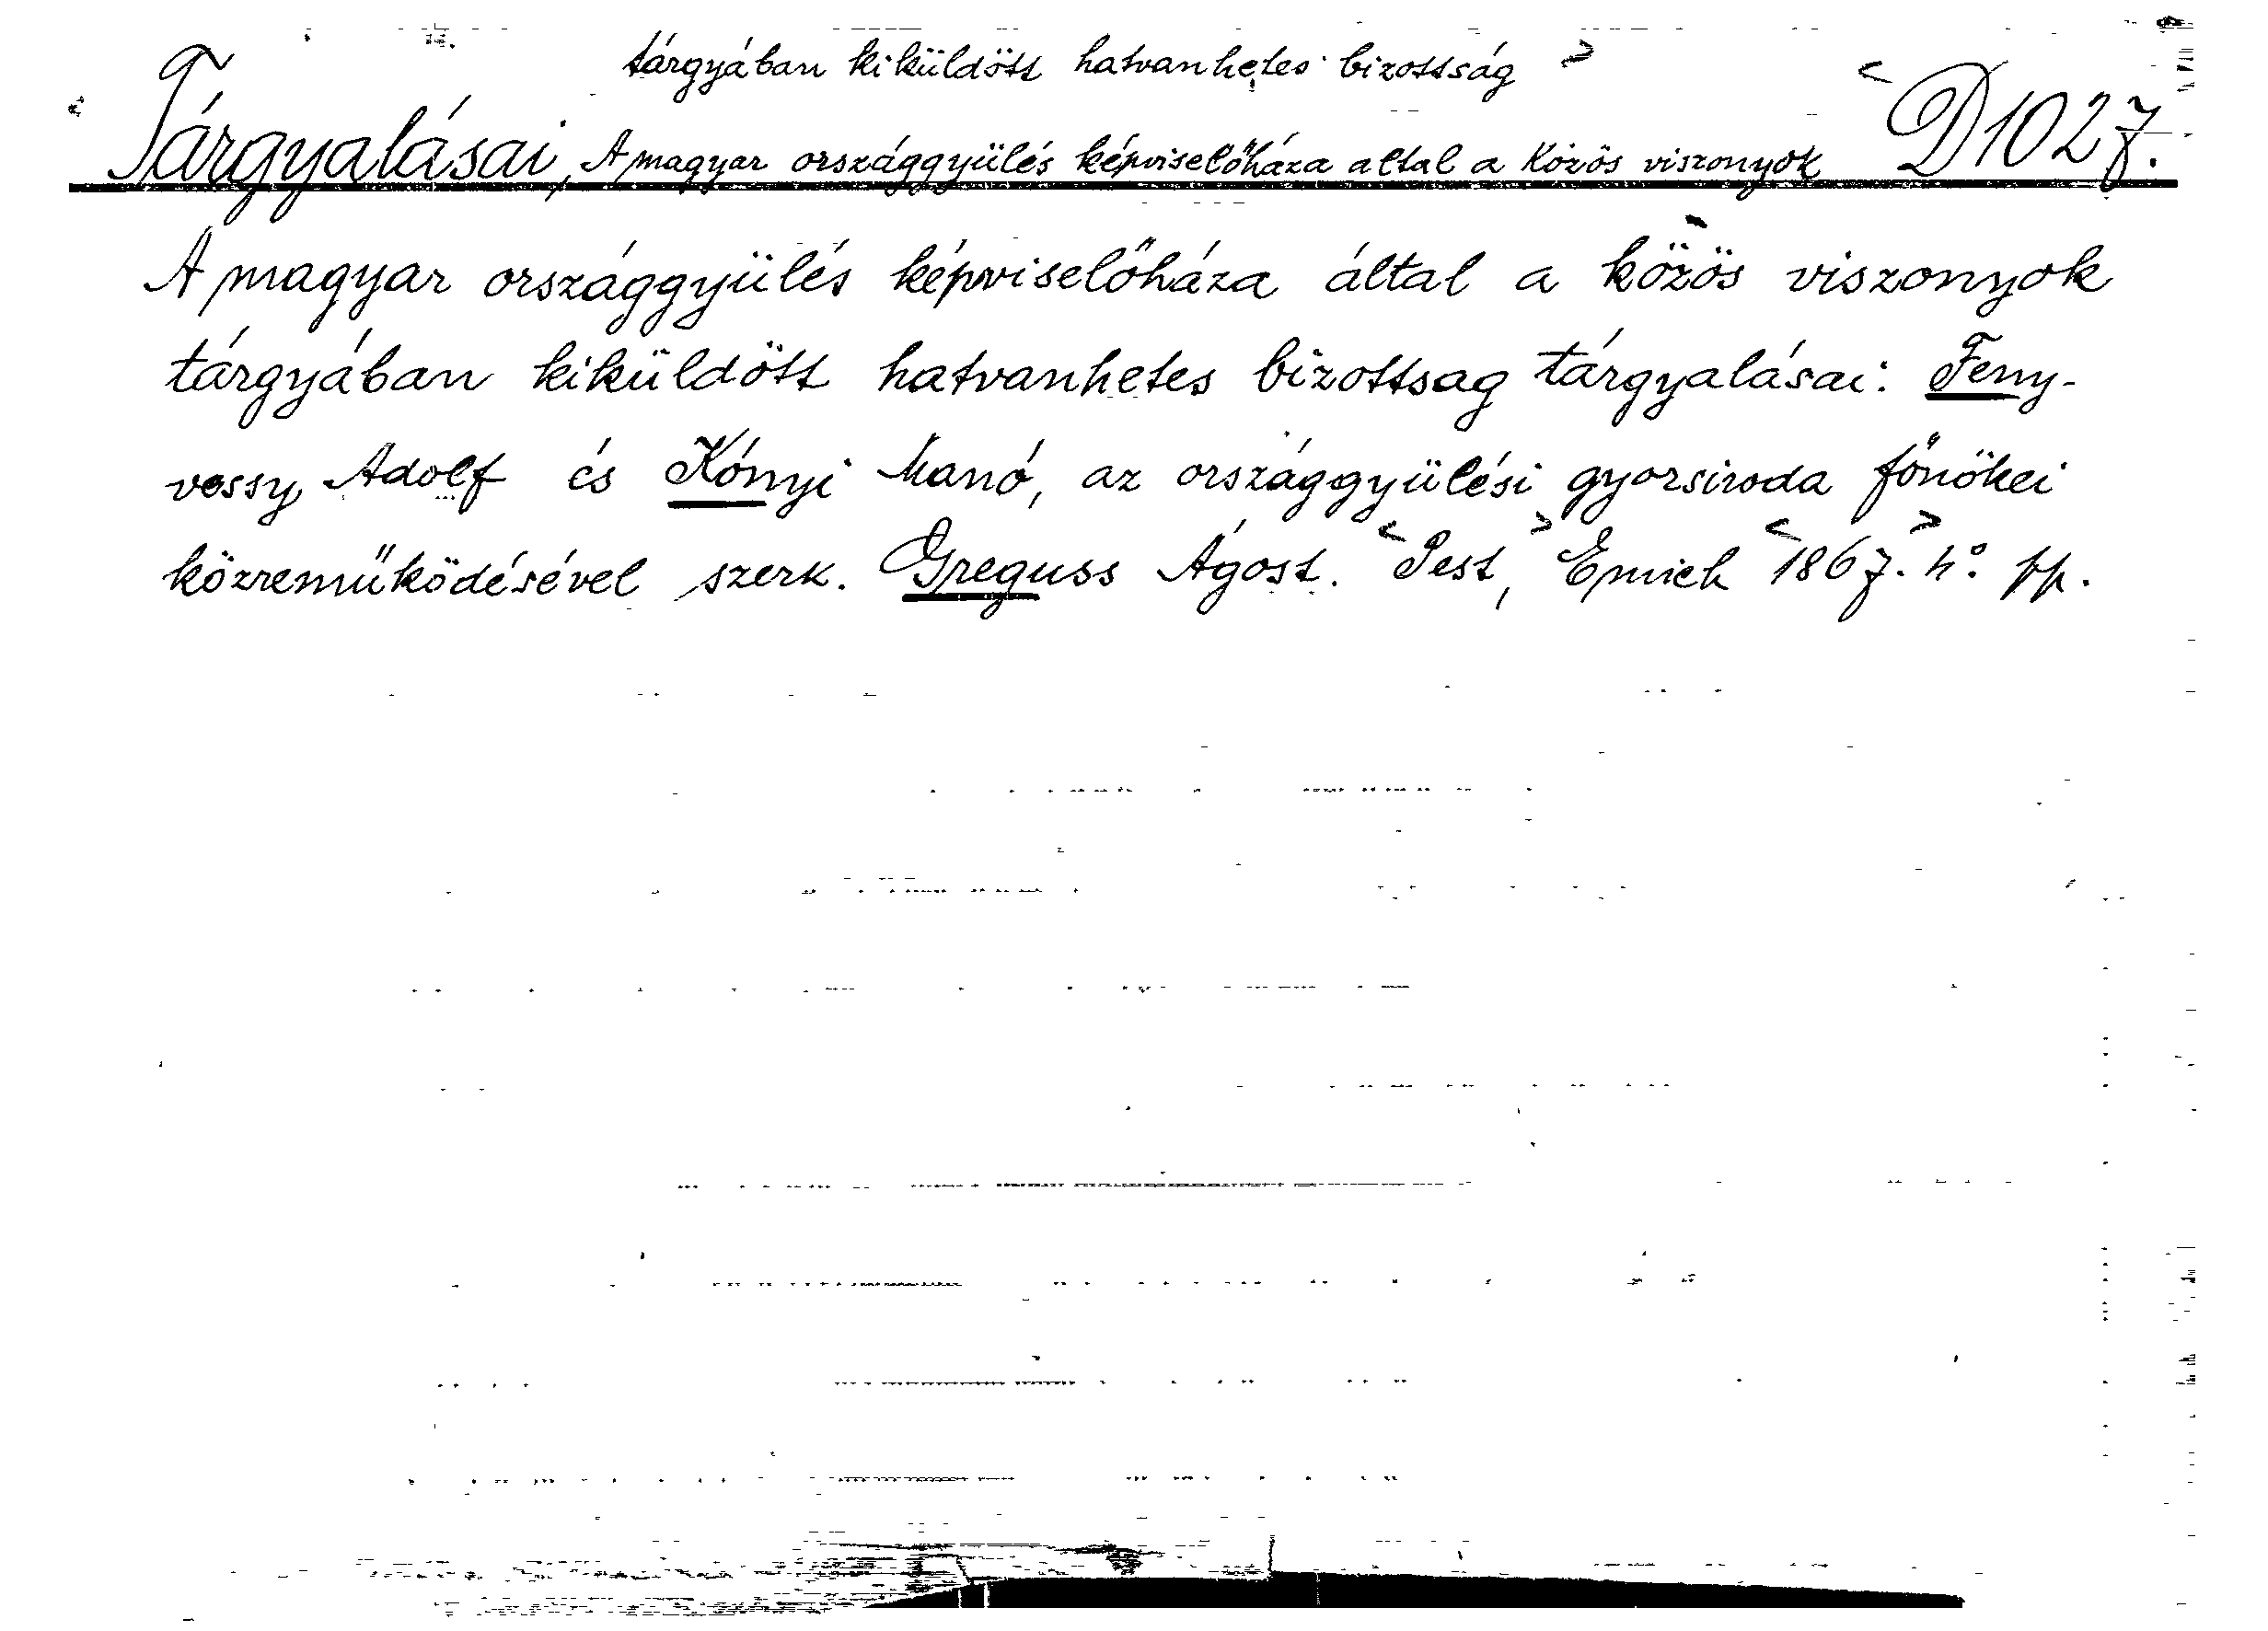 tárgyában kiküldött hatvanhetes bizottság >
Tárgyalásai, A magyar országgyülés képviselőháza altal a közös viszonyok < D1027.
A magyar országgyülés képviselőháza által a közös viszonyok
tárgyában kiküldött hatvanhetes bizottsag tárgyalásai: Feny-
vessy Adolf és Kónyi Manó, az országgyülési gyorsiroda főnökei
közreműködésével szerk. Greguss Ágost. <Pest,> Emich <1867.> 4° pp.